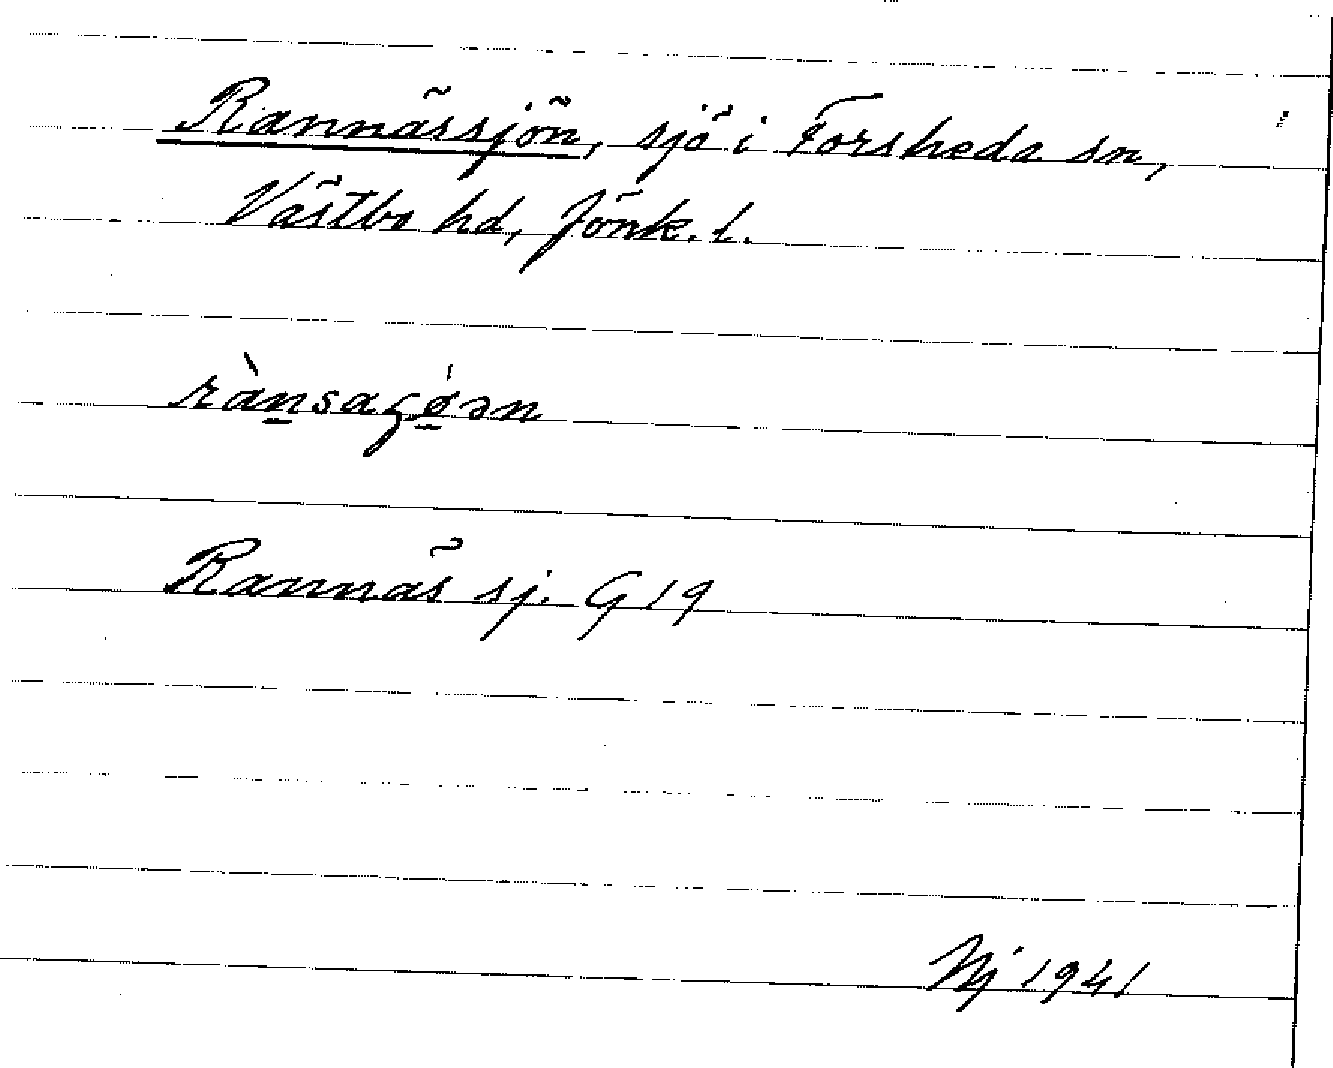 Rannässjön, sjö i Forsheda sn,
Västbo hd, Jönk. l.
rànsaʂǿ̠ən
Rannäs sj. G 19
Nj 1941